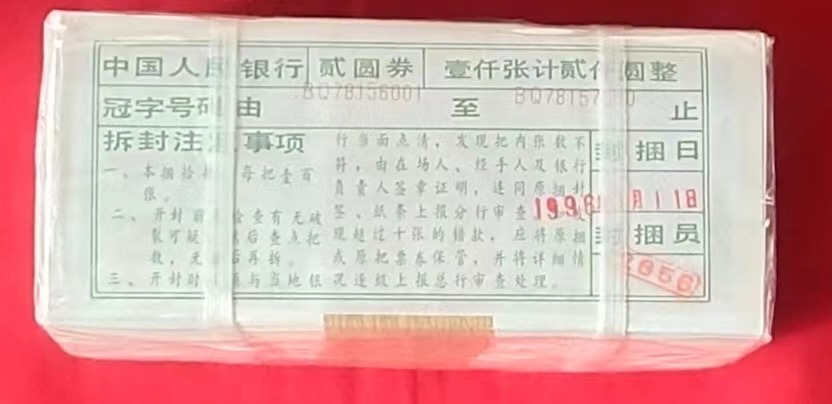 中国人民银行 贰圆券 壹仟张计贰仟圆整
冠字号码由 BQ78156001 至 BQ78157 0 止
拆封注 事项
一、本捆拾 每把壹百
张。
二、开封前 检查有无破
裂可疑 然后查点把
数,无 后再拆。
三、开封时 与当地银
行当面点清,发现把内张数不
符,由在场人、经手人及银行
负责人签章证明,连同原捆封
签、纸条上报分行审查 发
现超过十张的错款,应将原捆
或原把票券保管,并将详细情
况逐级上报总行审查处理。
封捆日
1996 月11日
封捆员
2656